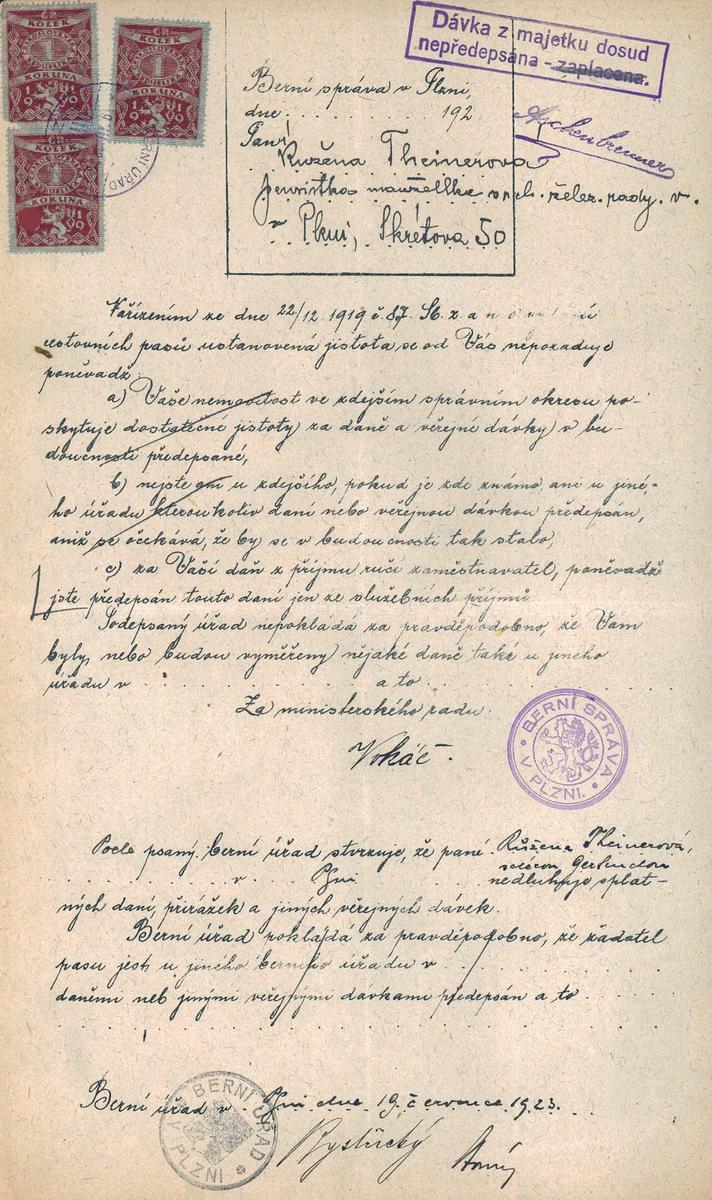 KOLEK
1
KORUNA
KOLEK
1
KORUNA
KOLEK
1
KORUNA
Dávka z majetku dosud
nepředepsána - zaplacena.
Berní správa v Plzni,
dne . . . . . . . . . 192
Paní
Růžena Theinerova
manželka
v Plzni, Škrétova 50
Nařízením ze dne 22/12. 1919 č. 87. Sb. z. a n. o vydání
cestovních pasů ustanovená jistota se od Vás nepožaduje
poněvadž:
a) Vaše nemovitost ve zdejším správním okresu po-
skytuje dostatečné jistoty za daně a veřejné dávky v bu-
doucnosti předepsané,
b) nejste ani u zdejšího, pokud je zde známo, ani u jiné-
ho úřadu kteroukoliv daní nebo veřejnou dávkou předepsán,
aniž se očekává, že by se v budoucnosti tak stalo,
c) za Vaší daň z příjmu ručí zaměstnavatel, poněvadž
jste předepsán touto daní jen ze služebních příjmů
Podepsaný úřad nepokládá za pravděpodobno, že Vám
byly nebo budou vyměřeny nějaké daně také u jiného
úřadu v . . . . . . . . . . . . a to . . . . . . . . . .
Za ministerského radu:
Vokáč.
BERNÍ SPRÁVA
V PLZNI.
Podepsaný berní úřad stvrzuje, že paní Růžena Theinerová,
. . . . . . . . v Plzni nedluhuje splat-
ných daní, přirážek a jiných veřejných dávek.
Berní úřad pokládá za pravděpodobno, že žadatel
pasu jest u jiného berního úřadu v
daněmi neb jinými veřejnými dávkami předepsán a to . . . . .
Berní úřad v Plzni dne 19. července 1923.
BERNÍ ÚŘAD
V PLZNI